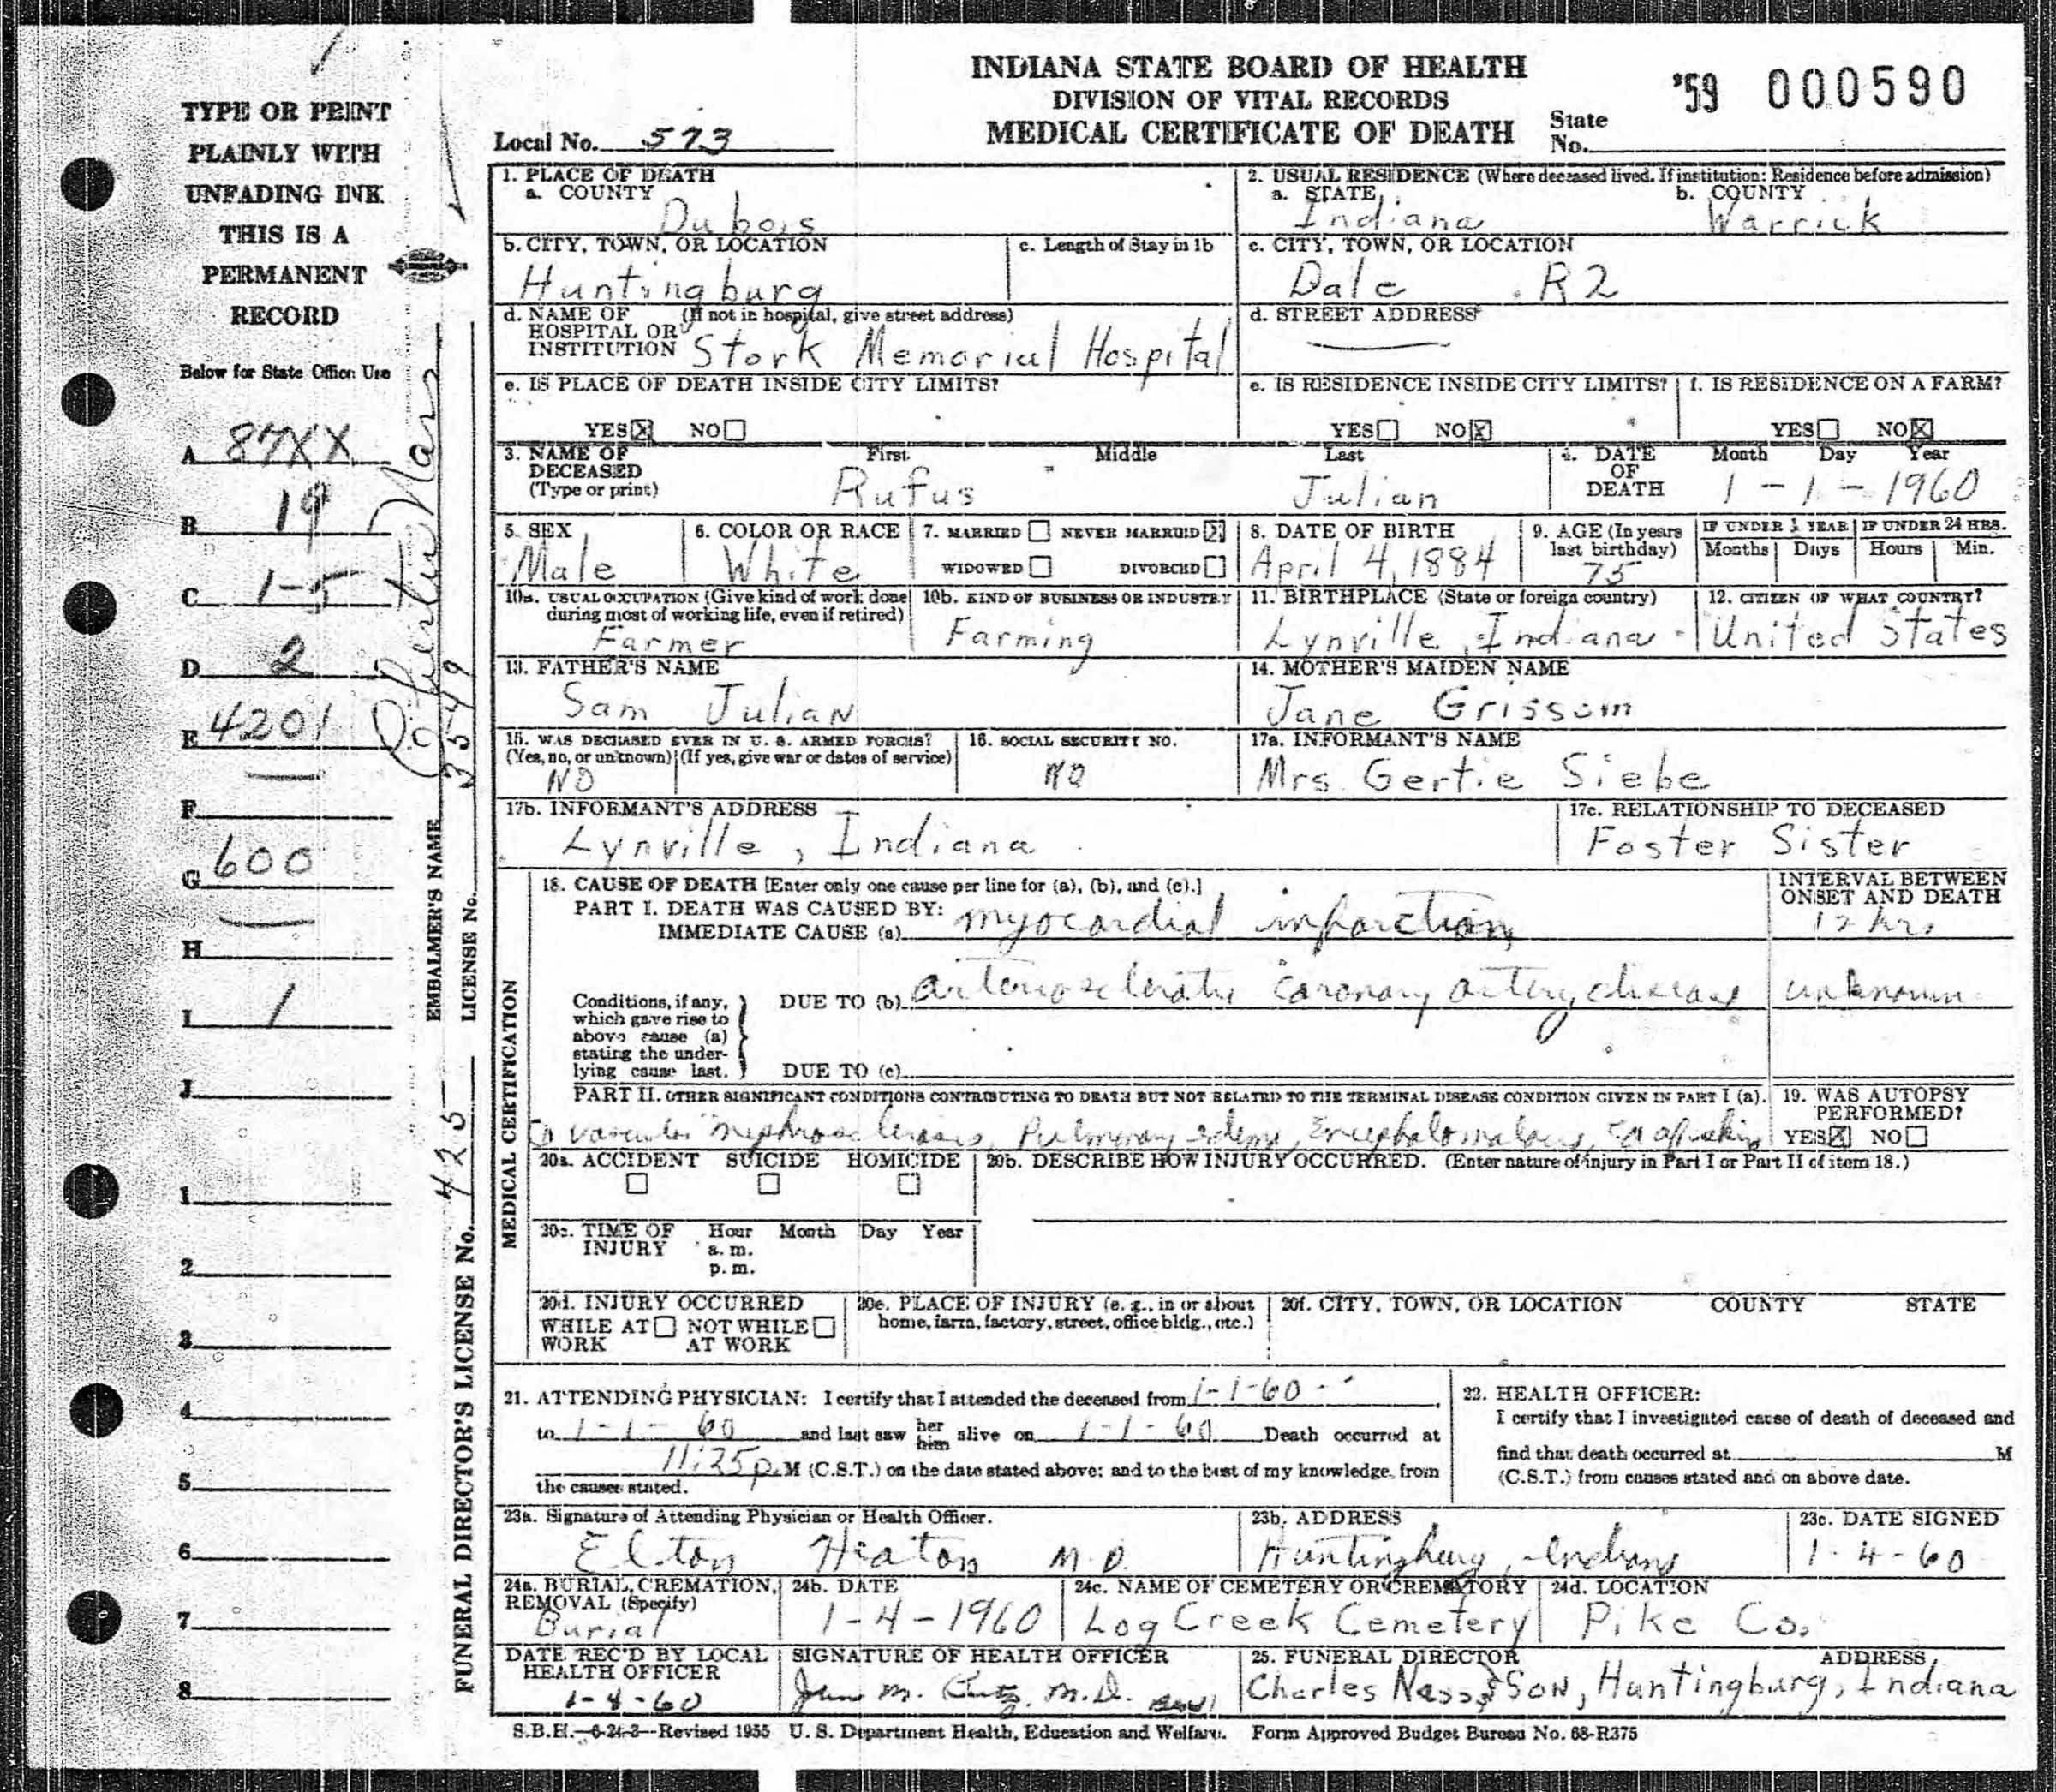 INDIANA STATE BOARD OF HEALTH
DIVISION OF VITAL RECORDS
MEDICAL CERTIFICATE OF DEATH
Local No. 573
State No.
'59 000590
TYPE OR PRINT
PLAINLY WITH
UNFADING INK
THIS IS A
PERMANENT
RECORD
Below for State Office Use
A 87XX
B 19
C 1-5
D 2
E 4201
F
G 600
H
I 1
J
1
2
3
4
5
6
7
8
EMBALMER'S NAME
LICENSE No. 3549
FUNERAL DIRECTOR'S LICENSE No. 425
1. PLACE OF DEATH
a. COUNTY
Dubois
2. USUAL RESIDENCE (Where deceased lived. If institution: Residence before admission)
a. STATE b. COUNTY
Indiana Warrick
b. CITY, TOWN, OR LOCATION
Huntingburg
c. Length of Stay in 1b
c. CITY, TOWN, OR LOCATION
Dale R2
d. NAME OF (If not in hospital, give street address)
HOSPITAL OR
INSTITUTION Stork Memorial Hospital
d. STREET ADDRESS
e. IS PLACE OF DEATH INSIDE CITY LIMITS?
YES X NO
e. IS RESIDENCE INSIDE CITY LIMITS?
YES NO X
f. IS RESIDENCE ON A FARM?
YES NO X
3. NAME OF
DECEASED
(Type or print)
First Middle Last
Rufus Julian
4. DATE
OF
DEATH
Month Day Year
1 - 1 - 1960
5. SEX
Male
6. COLOR OR RACE
White
7. MARRIED NEVER MARRIED X
WIDOWED DIVORCED
8. DATE OF BIRTH
April 4, 1884
9. AGE (In years
last birthday)
75
IF UNDER 1 YEAR IF UNDER 24 HRS.
Months Days Hours Min.
10a. USUAL OCCUPATION (Give kind of work done
during most of working life, even if retired)
Farmer
10b. KIND OF BUSINESS OR INDUSTRY
Farming
11. BIRTHPLACE (State or foreign country)
Lynville, Indiana
12. CITIZEN OF WHAT COUNTRY?
United States
13. FATHER'S NAME
Sam Julian
14. MOTHER'S MAIDEN NAME
Jane Grissom
15. WAS DECEASED EVER IN U. S. ARMED FORCES?
(Yes, no, or unknown) (If yes, give war or dates of service)
NO
16. SOCIAL SECURITY NO.
NO
17a. INFORMANT'S NAME
Mrs Gertie Siebe
17b. INFORMANT'S ADDRESS
Lynville, Indiana
17c. RELATIONSHIP TO DECEASED
Foster Sister
MEDICAL CERTIFICATION
18. CAUSE OF DEATH [Enter only one cause per line for (a), (b), and (c).]
INTERVAL BETWEEN
ONSET AND DEATH
PART I. DEATH WAS CAUSED BY:
IMMEDIATE CAUSE (a) myocardial infarction 12 hrs
Conditions, if any,
which gave rise to
above cause (a)
stating the under-
lying cause last.
DUE TO (b) arteriosclerotic coronary artery disease unknown
DUE TO (c)
PART II. OTHER SIGNIFICANT CONDITIONS CONTRIBUTING TO DEATH BUT NOT RELATED TO THE TERMINAL DISEASE CONDITION GIVEN IN PART I (a).
vascular nephrosclerosis, Pulmonary edema, Encephalomalacia
19. WAS AUTOPSY
PERFORMED?
YES X NO
20a. ACCIDENT SUICIDE HOMICIDE
20b. DESCRIBE HOW INJURY OCCURRED. (Enter nature of injury in Part I or Part II of item 18.)
20c. TIME OF Hour Month Day Year
INJURY a. m.
p. m.
20d. INJURY OCCURRED
WHILE AT NOT WHILE
WORK AT WORK
20e. PLACE OF INJURY (e. g., in or about
home, farm, factory, street, office bldg., etc.)
20f. CITY, TOWN, OR LOCATION COUNTY STATE
21. ATTENDING PHYSICIAN: I certify that I attended the deceased from 1-1-60
to 1-1-60 and last saw her him alive on 1-1-60 Death occurred at
11:25 p. M (C.S.T.) on the date stated above; and to the best of my knowledge, from
the causes stated.
22. HEALTH OFFICER:
I certify that I investigated cause of death of deceased and
find that death occurred at M
(C.S.T.) from causes stated and on above date.
23a. Signature of Attending Physician or Health Officer.
Elton Heaton M.D.
23b. ADDRESS
Huntingburg, Indiana
23c. DATE SIGNED
1-4-60
24a. BURIAL, CREMATION,
REMOVAL (Specify)
Burial
24b. DATE
1-4-1960
24c. NAME OF CEMETERY OR CREMATORY
Log Creek Cemetery
24d. LOCATION
Pike Co.
DATE REC'D BY LOCAL
HEALTH OFFICER
1-4-60
SIGNATURE OF HEALTH OFFICER
M.D.
25. FUNERAL DIRECTOR ADDRESS
Charles Nass & Son, Huntingburg, Indiana
S.B.H.—6-24-3—Revised 1955 U. S. Department Health, Education and Welfare. Form Approved Budget Bureau No. 68-R375